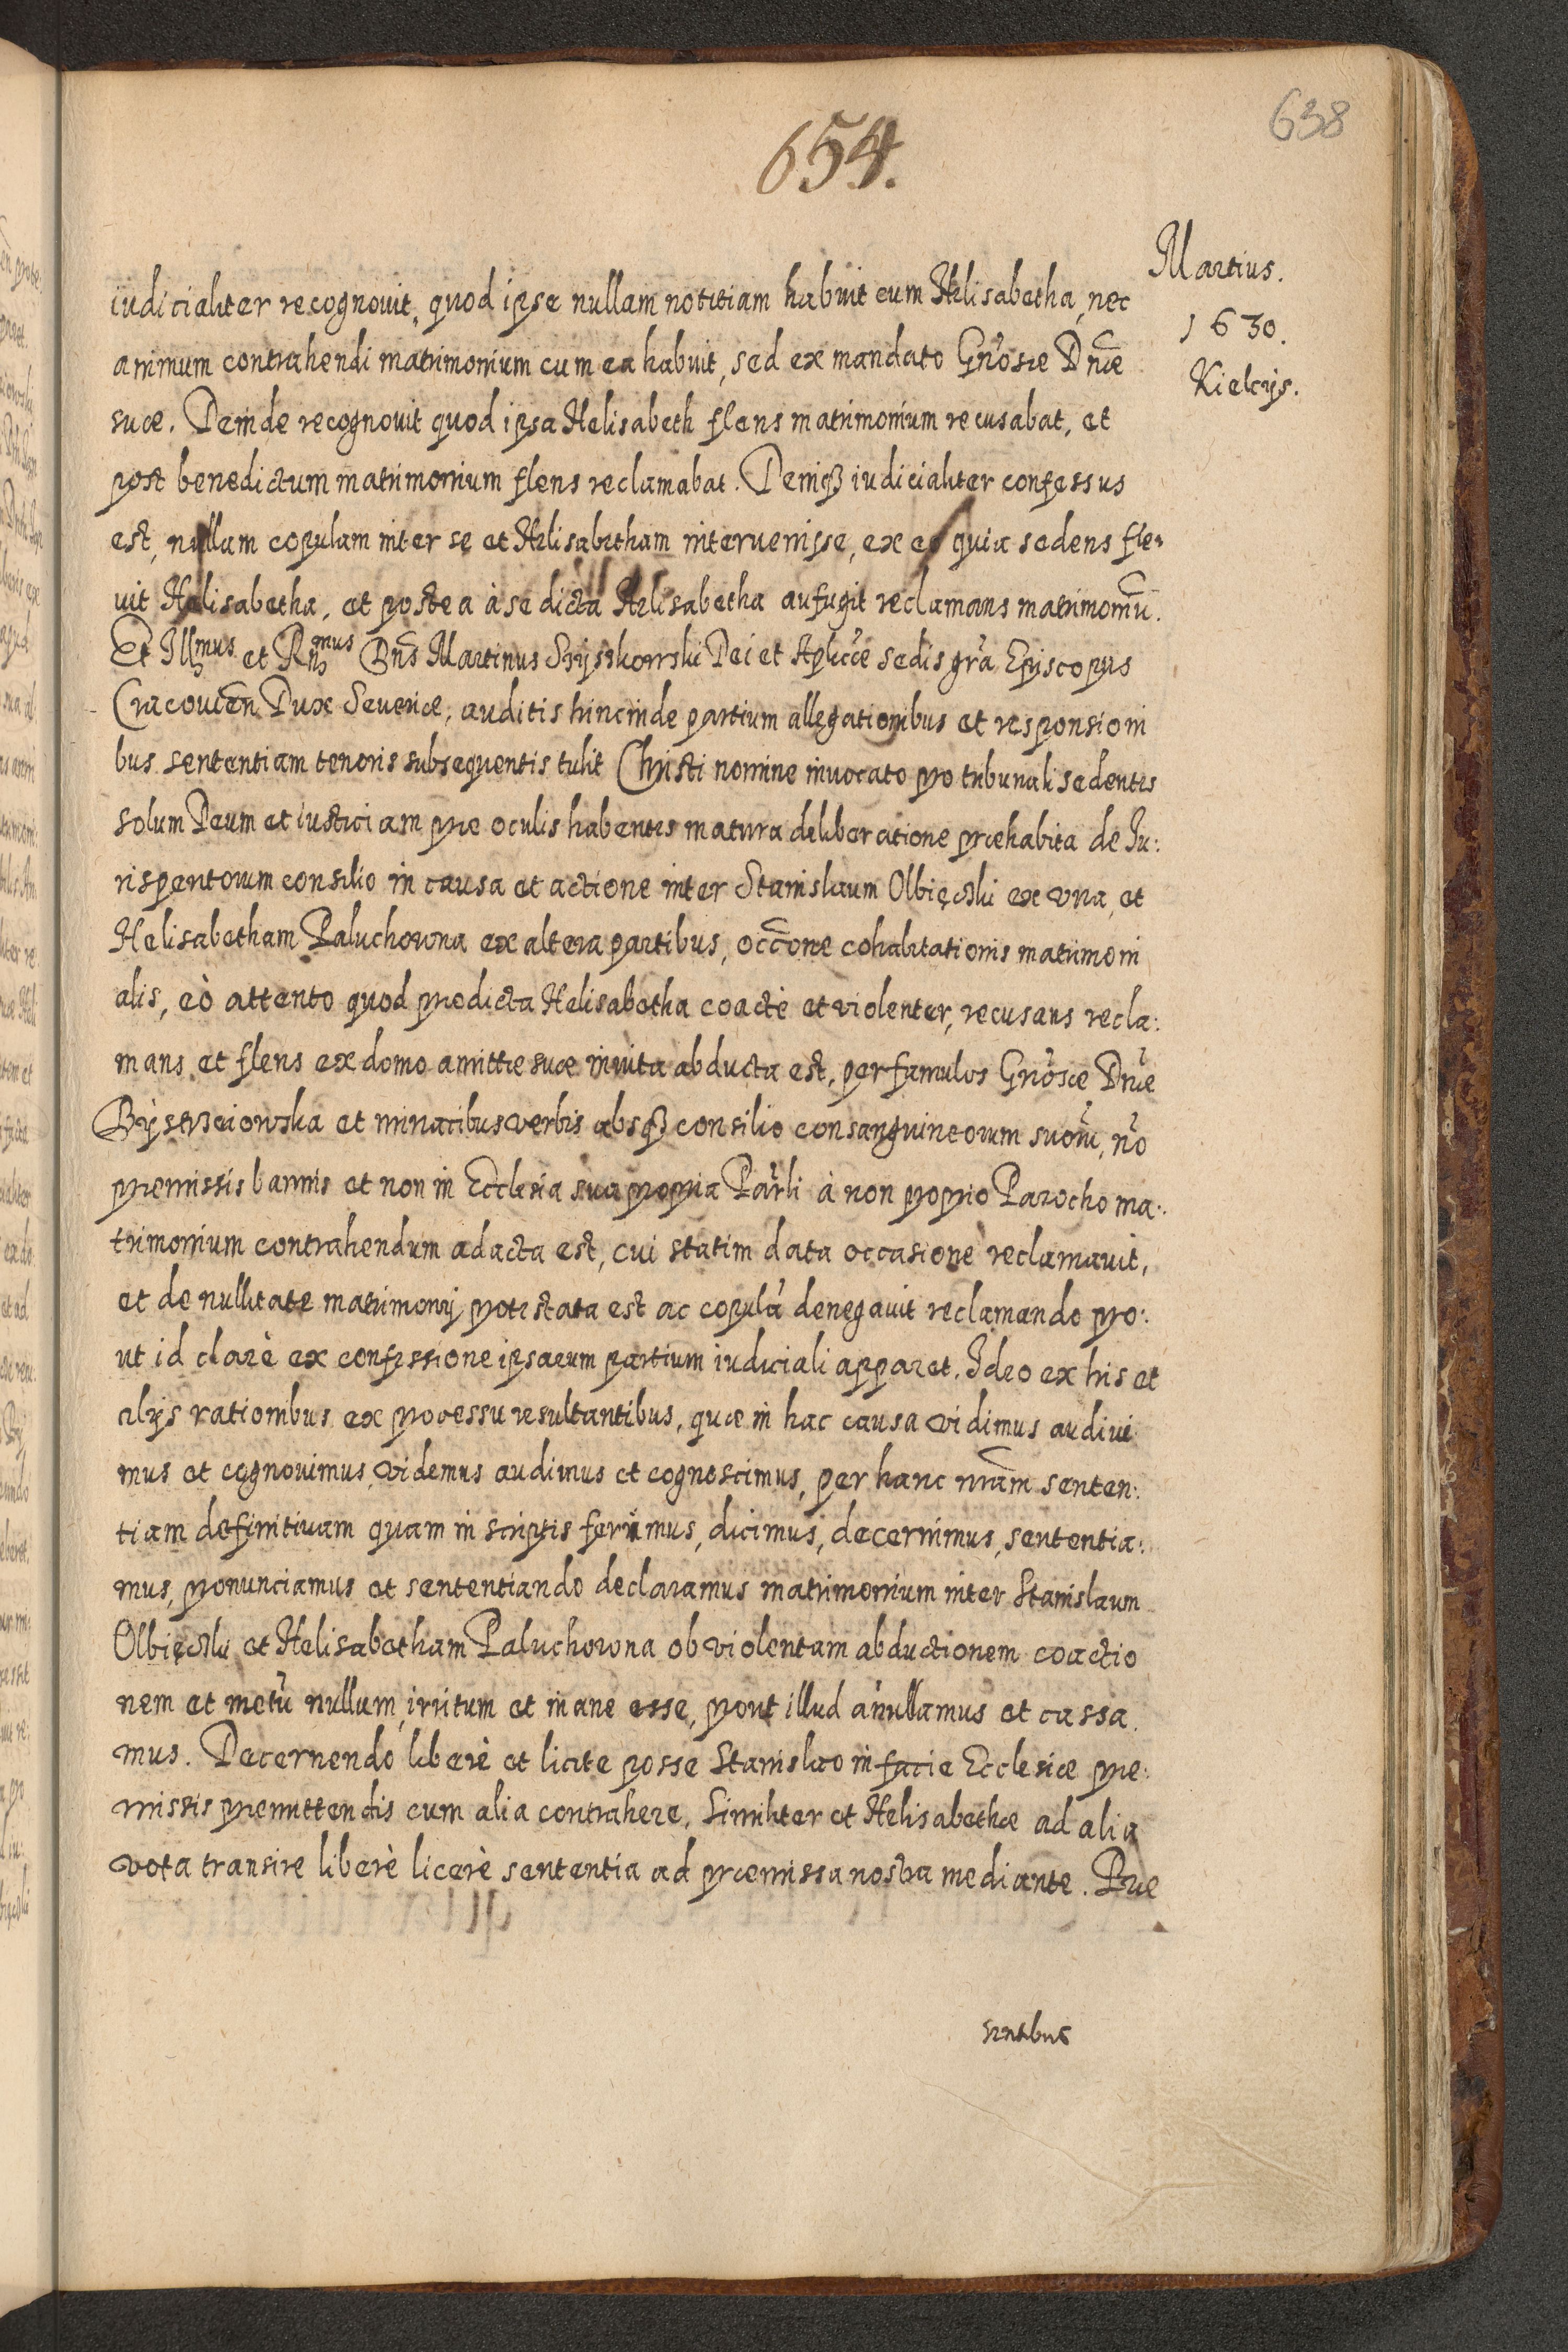 638
654.
Martius.
1630.
Kielcijs.
iudicialiter recognouit, quod ipse nullam notitiam habuit cum Helisabetha, nec
animum contrahendi matrimonium cum ea habuit, sed ex mandato Gñosæ Dñæ
suæ. Deinde recognouit quod ipsa Helisabeth flens matrimonium recusabat, et
post benedictum matrimonium flens reclamabat. Deniqꝫ iudicialiter confessus
est, nullam copulam inter se et Helisabetham interuenisse, ex eo quia sedens fle-
uit Helisabetha, et postea à se dicta Helisabetha aufugit reclamans matrimoniũ.
Et Illmus et Rmus Dñs Martinus Szyszkowski Dei et Aplicæ sedis gr̃a Episcopus
Cracouien̄ Dux Seueriæ, auditis hincinde partium allegationibus et responsioni
bus sententiam tenoris subsequentis tulit Christi nomine inuocato pro tribunali sedentes
solum Deum et iusticiam præ oculis habentes matura deliberatione præhabita de Iu:
risperitorum consilio in causa et actione inter Stanislaum Olbięcki ex vna, et
Helisabetham Paluchowna ex altera partibus, occõne cohabitationis matrimoni
alis, eò attento quod prædicta Helisabetha coactè et violenter, recusans recla:
mans et flens ex domo amittæ suæ inuita abducta est, per famulos Gñosæ Dñæ
et minacibus verbis absqꝫ consilio consanguineorum suorũ, nõ
præmissis bannis et non in Ecclesia sua propria Parl̃i à non proprio Parocho ma:
trimonium contrahendum adacta est, cui statim data occasione reclamauit,
et de nullitate matrimonij protestata est ac copulã denegauit reclamando pro:
ut id clarè ex confessione ipsarum partium iudiciali apparet. Ideo ex his et
alijs rationibus ex processu resultantibus, quæ in hac causa vidimus audiui
mus et cognouimus, videmus audimus et cognoscimus, per hanc nrãm senten:
tiam definitiuam quam in scriptis ferimus, dicimus, decernimus, sententia:
mus, pronunciamus et sententiando declaramus matrimonium inter Stanislaum
Olbięcki et Helisabetham Paluchowna ob violentam abductionem coactio
nem et metũ nullum, irritum et inane esse, prout illud añullamus et cassa
mus. Decernendo liberè et licite posse Stanislao in facie Ecclesiæ præ:
missis præmittendis cum alia contrahere, Similiter et Helisabethæ ad alia
vota transire liberè licerè sententia ad præmissa nostra mediante. Præ
sentibus